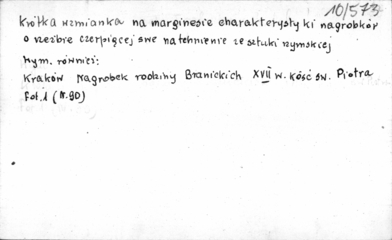 10/573
Krótka wzmianka na marginesie charakterystyki nagrobków
o rzeźbie czerpiącej swe natchnienie ze sztuki rzymskiej
wym. również:
Kraków Nagrobek rodziny Branickich XVII w. Kość św. Piotra
fot. 1 (N. 90)